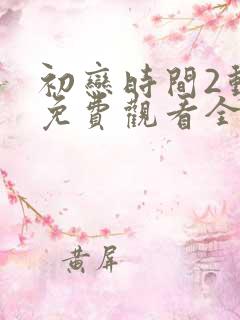 初戀時間2動
免費觀看全
黄屏